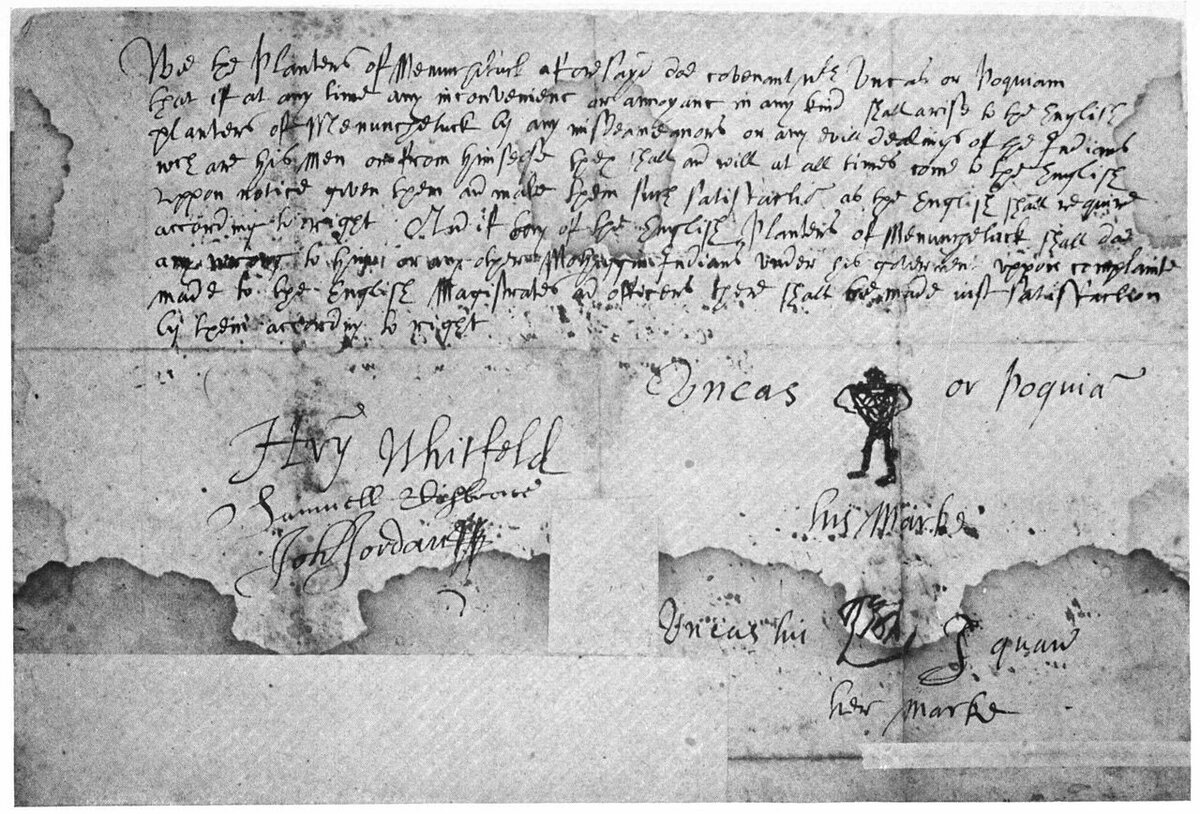 Wee the Planters of Menunchatuck aforesayd doe covenant wth Vncas or Poquiam
that if at any time any inconvenienc or annoyanc in any kind shall arise to the English
planters of Menuncheluck by any misdeameanors or any evill dealings of the Indians
wch are his men or from himselfe they shall and will at all times come to the English
vppon notice given them and make them such satisfactiō as the English shall require
according to right And if any of the English Planters of Menuncheluck shall doe
any wrong to him or any other Mohiggin Indians vnder his goverment vppon complainte
made to the English Magistrates and officers there shall be made iust satisfaction
by them according to right
Vncas or Poquiā
Hry Whitfeld
Samuell
his Marke
John Jordan
Vncas his Squaw
her marke